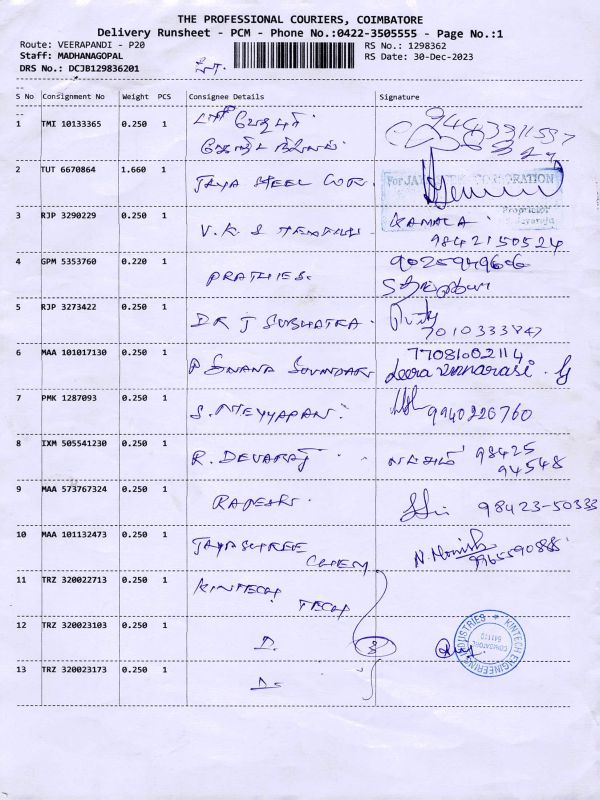 THE PROFESSIONAL COURIERS, COIMBATORE
Delivery Runsheet - PCM - Phone No.:0422-3505555 - Page No.:1
Route: VEERAPANDI - P20
RS No.: 1298362
Staff: MADHANAGOPAL
RS Date: 30-Dec-2023
DRS No.: DCJB129836201
S No Consignment No Weight PCS Consignee Details Signature
1 TMI 10133365 0.250 1
2 TUT 6670864 1.660 1 JAYA STEEL CORN.
For JAY CORPORATION
Proprietor
3 RJP 3290229 0.250 1 V.K.S KAMALA
98421 50524
4 GPM 5353760 0.220 1 PRATHIES. 9025949606
5 RJP 3273422 0.250 1 DR J SUBHATRA.
7010333847
6 MAA 101017130 0.250 1 P ANAND SOUNDAR 77081002114
7 PMK 1287093 0.250 1 S. MEYYAPAN. 9940226760
8 IXM 505541230 0.250 1 R. DEVARAJ 98425
94548
9 MAA 573767324 0.250 1 RAJESH. 98423-50333
10 MAA 101132473 0.250 1 JAYASHREE
CHEM
N. Monish
9965590888
11 TRZ 320022713 0.250 1 KINTECH
TECH
12 TRZ 320023103 0.250 1 D. 3
KINTECH ENGINEERING INDUSTRIES
COIMBATORE
641110
13 TRZ 320023173 0.250 1 D.